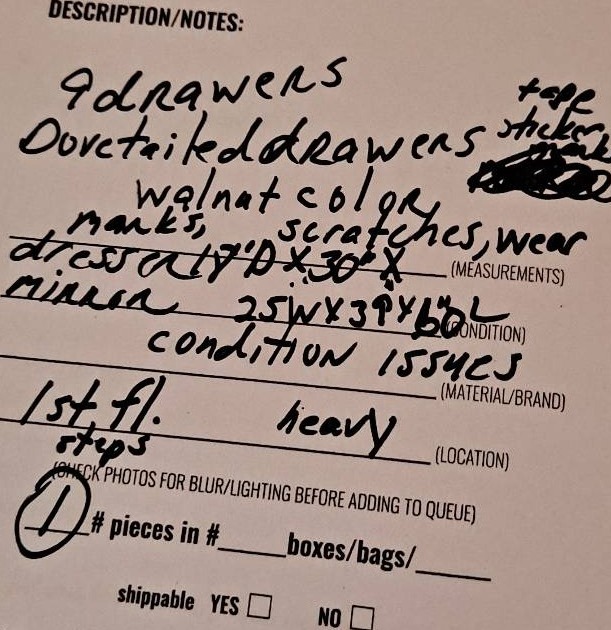 DESCRIPTION/NOTES:
9 drawers
tape
Dovetailed drawers sticker
mark
walnut color,
marks, scratches, wear
dresser 17"D X 30" X (MEASUREMENTS)
mirror 25W X 39 X L (CONDITION)
condition issues
(MATERIAL/BRAND)
1st fl. heavy (LOCATION)
steps
(CHECK PHOTOS FOR BLUR/LIGHTING BEFORE ADDING TO QUEUE)
1 # pieces in #____ boxes/bags/____
shippable YES ☐ NO ☐